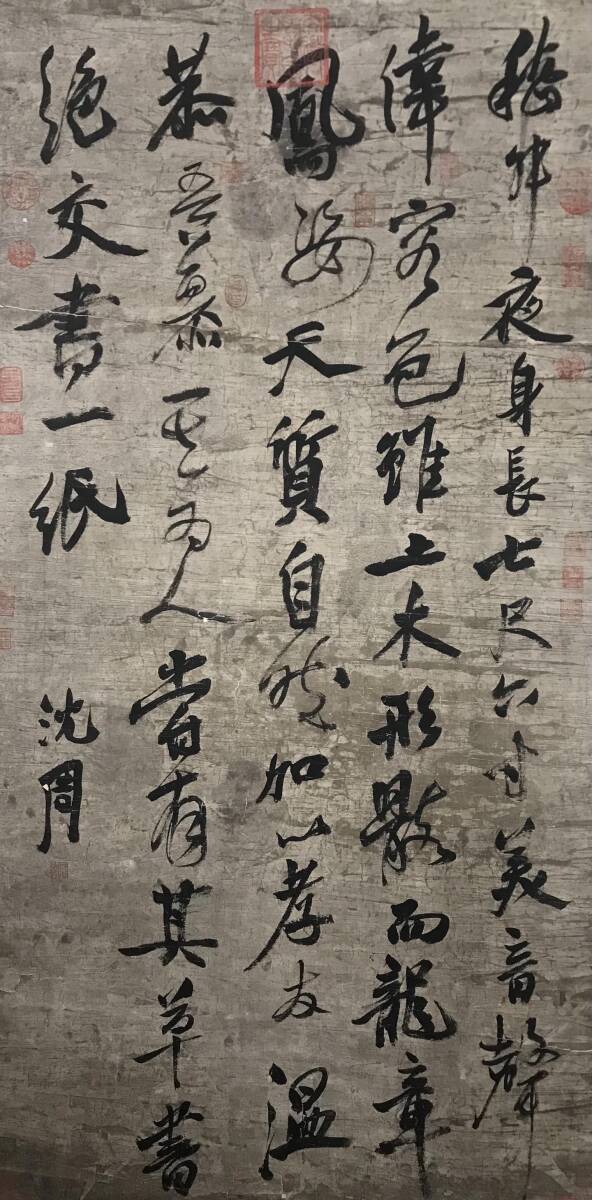 嵇叔夜身長七尺六寸美音聲
偉容色雖土木形骸而龍章
鳳姿天質自然加以孝友溫
恭吾慕其為人嘗有其草書
絕交書一紙
沈周